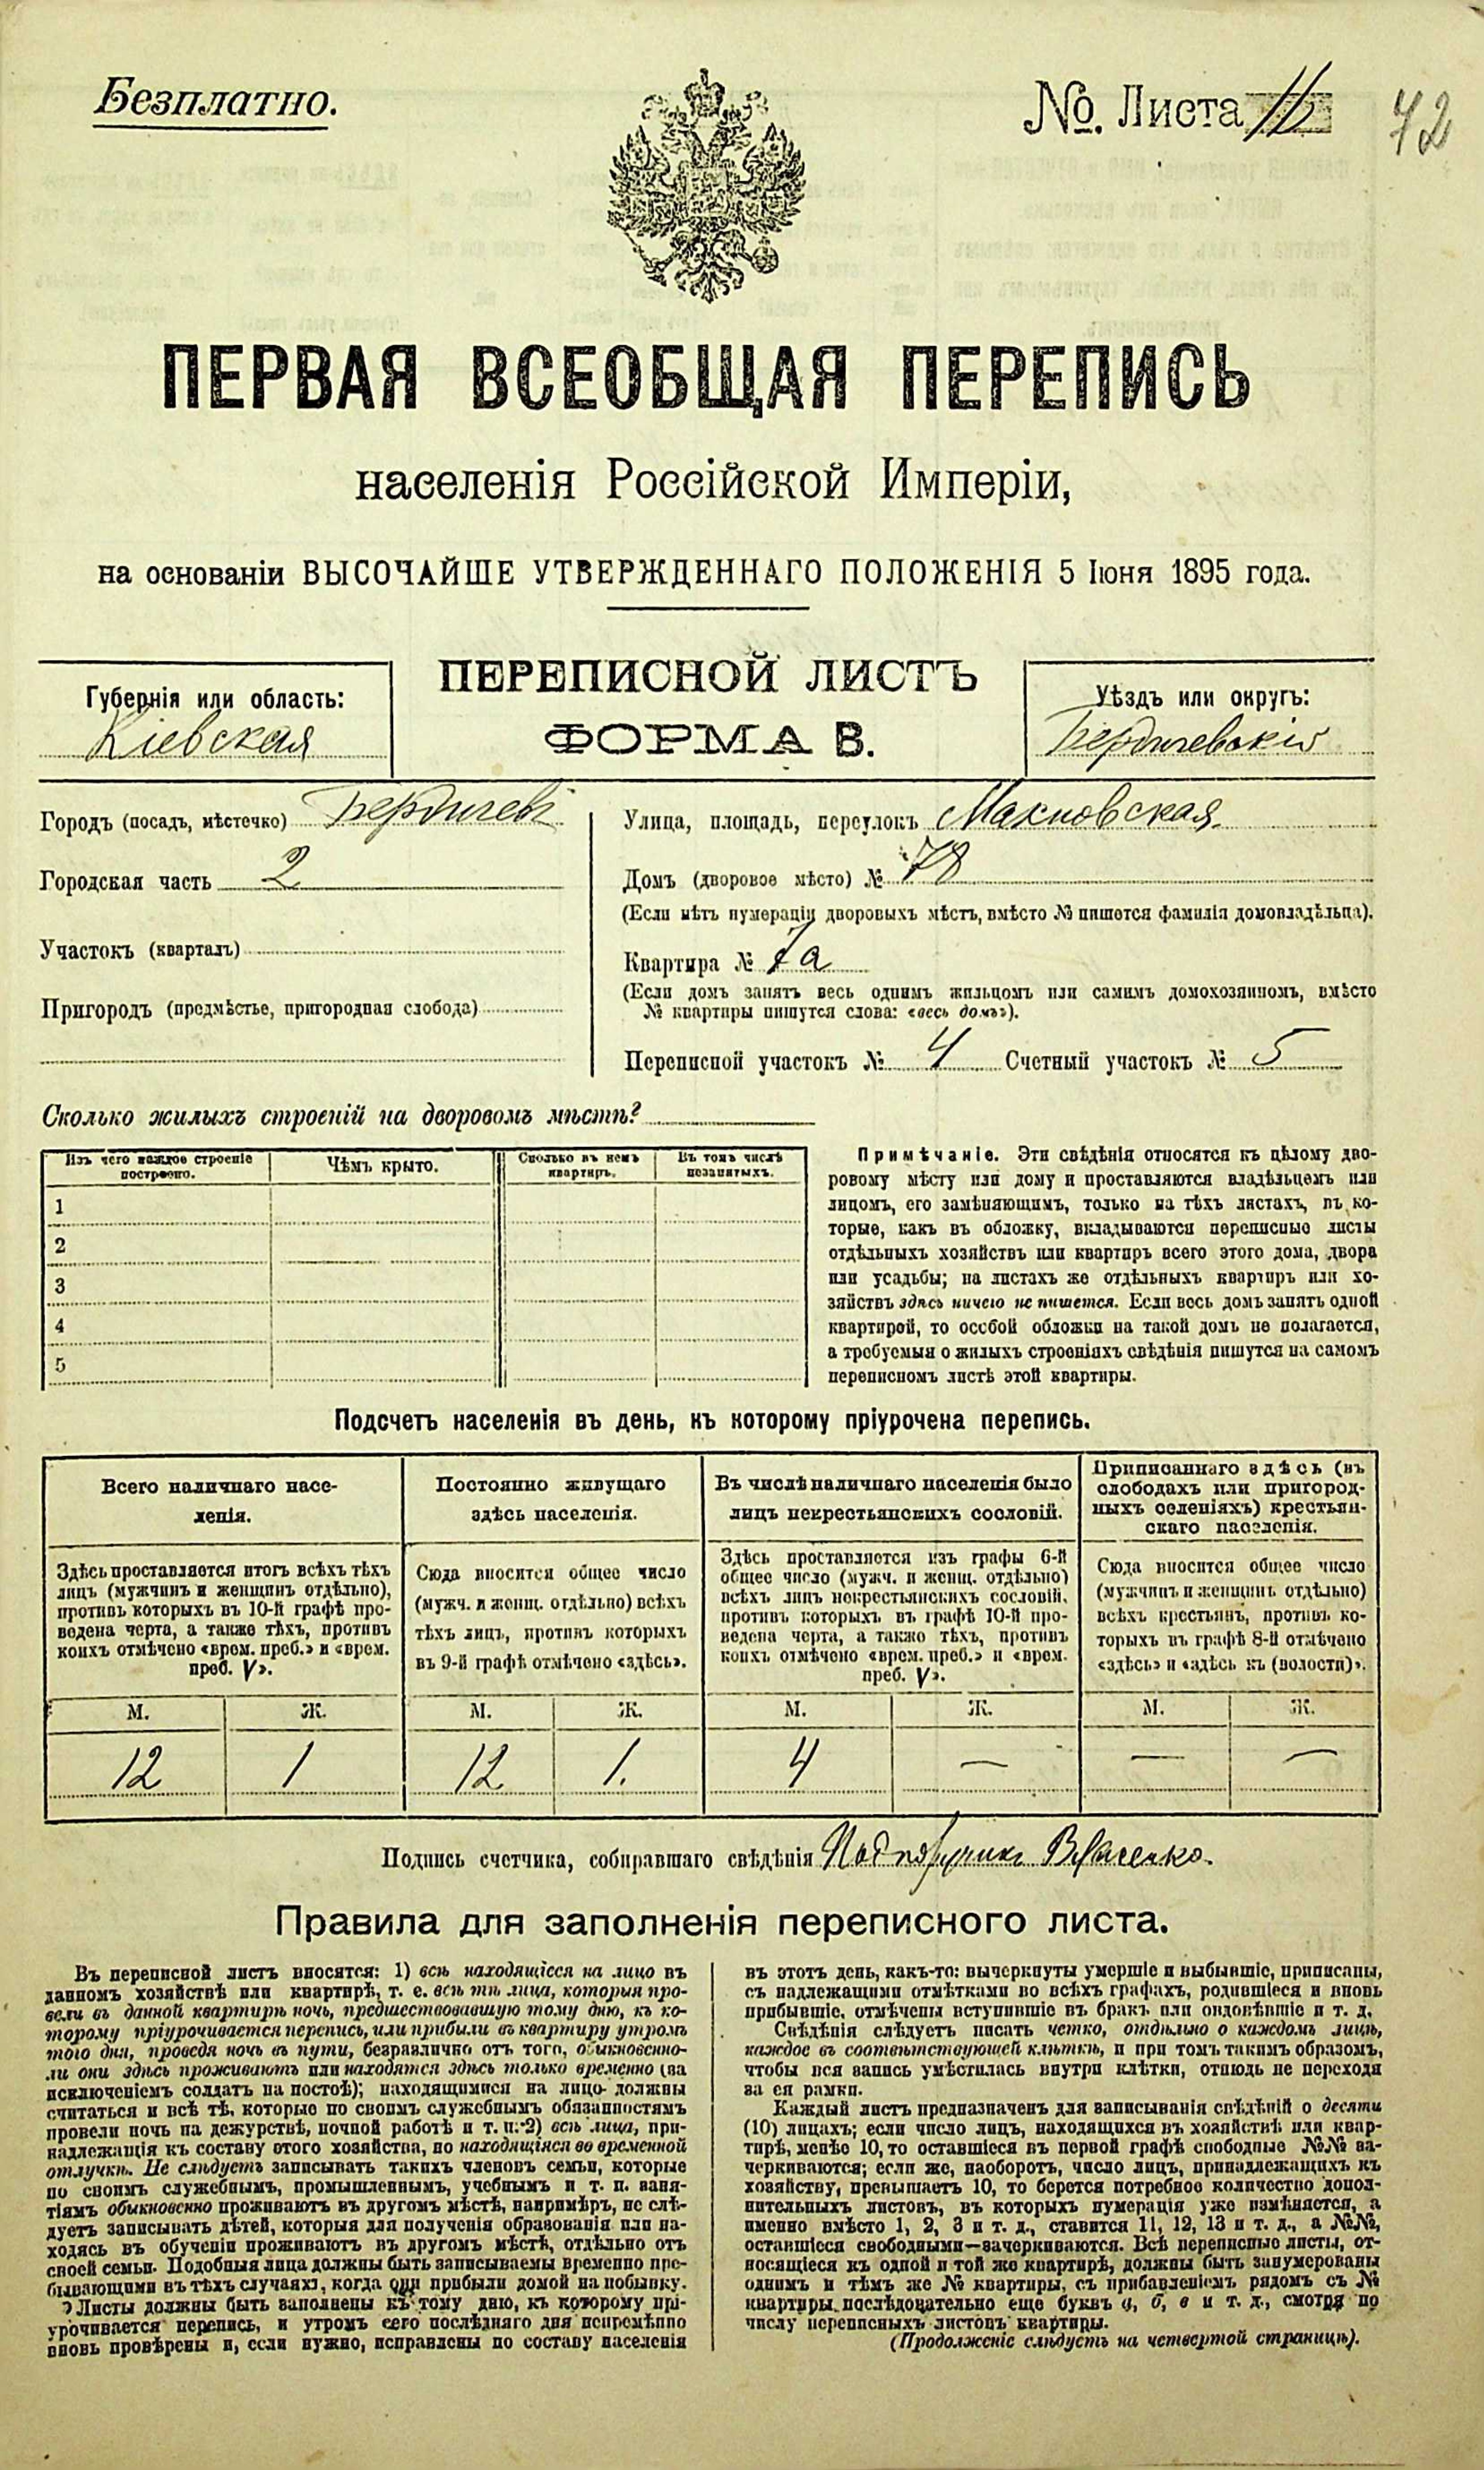 Безплатно.
№. Листа
72
ПЕРВАЯ ВСЕОБЩАЯ ПЕРЕПИСЬ
населенія Россійской Имперіи,
на основаніи ВЫСОЧАЙШЕ УТВЕРЖДЕННАГО ПОЛОЖЕНІЯ 5 Іюня 1895 года.
Губернія или область:
Кіевская
ПЕРЕПИСНОЙ ЛИСТЪ
ФОРМА В.
Уѣздъ или округъ:
Бердичевскій
Городъ (посадъ, мѣстечко) Бердичевъ
Городская часть 2
Участокъ (кварталъ)
Пригородъ (предмѣстье, пригородная слобода)
Улица, площадь, переулокъ Махновская
Домъ (дворовое мѣсто) № 78
(Если нѣтъ нумераціи дворовыхъ мѣстъ, вмѣсто № пишется фамилія домовладѣльца).
Квартира № 7а
(Если домъ занятъ весь однимъ жильцомъ или самимъ домохозяиномъ, вмѣсто
№ квартиры пишутся слова: «весь домъ»).
Переписной участокъ № 4 Счетный участокъ № 5
Сколько жилыхъ строеній на дворовомъ мѣстѣ?
Изъ чего каждое строеніе
построено.
Чѣмъ крыто.
Сколько въ немъ
квартиръ.
Въ томъ числѣ
незанятыхъ.
1
2
3
4
5
Примѣчаніе. Эти свѣдѣнія относятся къ цѣлому дво-
ровому мѣсту или дому и проставляются владѣльцемъ или
лицомъ, его замѣняющимъ, только на тѣхъ листахъ, въ ко-
торые, какъ въ обложку, вкладываются переписные листы
отдѣльныхъ хозяйствъ или квартиръ всего этого дома, двора
или усадьбы; на листахъ же отдѣльныхъ квартиръ или хо-
зяйствъ здѣсь ничего не пишется. Если весь домъ занятъ одной
квартирой, то особой обложки на такой домъ не полагается,
а требуемыя о жилыхъ строеніяхъ свѣдѣнія пишутся на самомъ
переписномъ листѣ этой квартиры.
Подсчетъ населенія въ день, къ которому пріурочена перепись.
Всего наличнаго насе-
ленія.
Постоянно живущаго
здѣсь населенія.
Въ числѣ наличнаго населенія было
лицъ некрестьянскихъ сословій.
Приписаннаго здѣсь (въ
слободахъ или пригород-
ныхъ селеніяхъ) крестьян-
скаго населенія.
Здѣсь проставляется итогъ всѣхъ тѣхъ
лицъ (мужчинъ и женщинъ отдѣльно),
противъ которыхъ въ 10-й графѣ про-
ведена черта, а также тѣхъ, противъ
коихъ отмѣчено «врем. преб.» и «врем.
преб. V».
Сюда вносится общее число
(мужч. и женщ. отдѣльно) всѣхъ
тѣхъ лицъ, противъ которыхъ
въ 9-й графѣ отмѣчено «здѣсь».
Здѣсь проставляется изъ графы 6-й
общее число (мужч. и женщ. отдѣльно)
всѣхъ лицъ некрестьянскихъ сословій,
противъ которыхъ въ графѣ 10-й про-
ведена черта, а также тѣхъ, противъ
коихъ отмѣчено «врем. преб.» и «врем.
преб. V».
Сюда вносится общее число
(мужчинъ и женщинъ отдѣльно)
всѣхъ крестьянъ, противъ ко-
торыхъ въ графѣ 8-й отмѣчено
«здѣсь» и «здѣсь къ (волости)».
М. Ж. М. Ж. М. Ж. М. Ж.
12 1 12 1. 4 — — —
Подпись счетчика, собиравшаго свѣдѣнія Подпоручикъ Власенко.
Правила для заполненія переписного листа.
Въ переписной листъ вносятся: 1) всѣ находящіеся на лицо въ
данномъ хозяйствѣ или квартирѣ, т. е. всѣ тѣ лица, которыя про-
вели въ данной квартирѣ ночь, предшествовавшую тому дню, къ ко-
торому пріурочивается перепись, или прибыли въ квартиру утромъ
того дня, проведя ночь въ пути, безразлично отъ того, обыкновенно-
ли они здѣсь проживаютъ или находятся здѣсь только временно (за
исключеніемъ солдатъ на постоѣ); находящимися на лицо должны
считаться и всѣ тѣ, которые по своимъ служебнымъ обязанностямъ
провели ночь на дежурствѣ, ночной работѣ и т. п.; 2) всѣ лица, при-
надлежащія къ составу этого хозяйства, но находящіяся во временной
отлучкѣ. Не слѣдуетъ записывать такихъ членовъ семьи, которые
по своимъ служебнымъ, промышленнымъ, учебнымъ и т. п. заня-
тіямъ обыкновенно проживаютъ въ другомъ мѣстѣ, напримѣръ, не слѣ-
дуетъ записывать дѣтей, которыя для полученія образованія или на-
ходясь въ обученіи проживаютъ въ другомъ мѣстѣ, отдѣльно отъ
своей семьи. Подобныя лица должны быть записываемы временно пре-
бывающими въ тѣхъ случаяхъ, когда они прибыли домой на побывку.
Листы должны быть заполнены къ тому дню, къ которому прі-
урочивается перепись, и утромъ сего послѣдняго дня непремѣнно
вновь провѣрены и, если нужно, исправлены по составу населенія
въ этотъ день, какъ-то: вычеркнуты умершіе и выбывшіе, приписаны,
съ надлежащими отмѣтками во всѣхъ графахъ, родившіеся и вновь
прибывшіе, отмѣчены вступившіе въ бракъ или овдовѣвшіе и т. д.
Свѣдѣнія слѣдуетъ писать четко, отдѣльно о каждомъ лицѣ,
каждое въ соотвѣтствующей клѣткѣ, и при томъ такимъ образомъ,
чтобы вся запись умѣстилась внутри клѣтки, отнюдь не переходя
за ея рамки.
Каждый листъ предназначенъ для записыванія свѣдѣній о десяти
(10) лицахъ; если число лицъ, находящихся въ хозяйствѣ или квар-
тирѣ, менѣе 10, то оставшіеся въ первой графѣ свободные №№ за-
черкиваются; если же, наоборотъ, число лицъ, принадлежащихъ къ
хозяйству, превышаетъ 10, то берется потребное количество допол-
нительныхъ листовъ, въ которыхъ нумерація уже измѣняется, а
именно вмѣсто 1, 2, 3 и т. д., ставится 11, 12, 13 и т. д., а №№,
оставшіеся свободными—зачеркиваются. Всѣ переписные листы, от-
носящіеся къ одной и той же квартирѣ, должны быть занумерованы
однимъ и тѣмъ же № квартиры, съ прибавленіемъ рядомъ съ №
квартиры послѣдовательно еще буквъ а, б, в и т. д., смотря по
числу переписныхъ листовъ квартиры.
(Продолженіе слѣдуетъ на четвертой страницѣ).